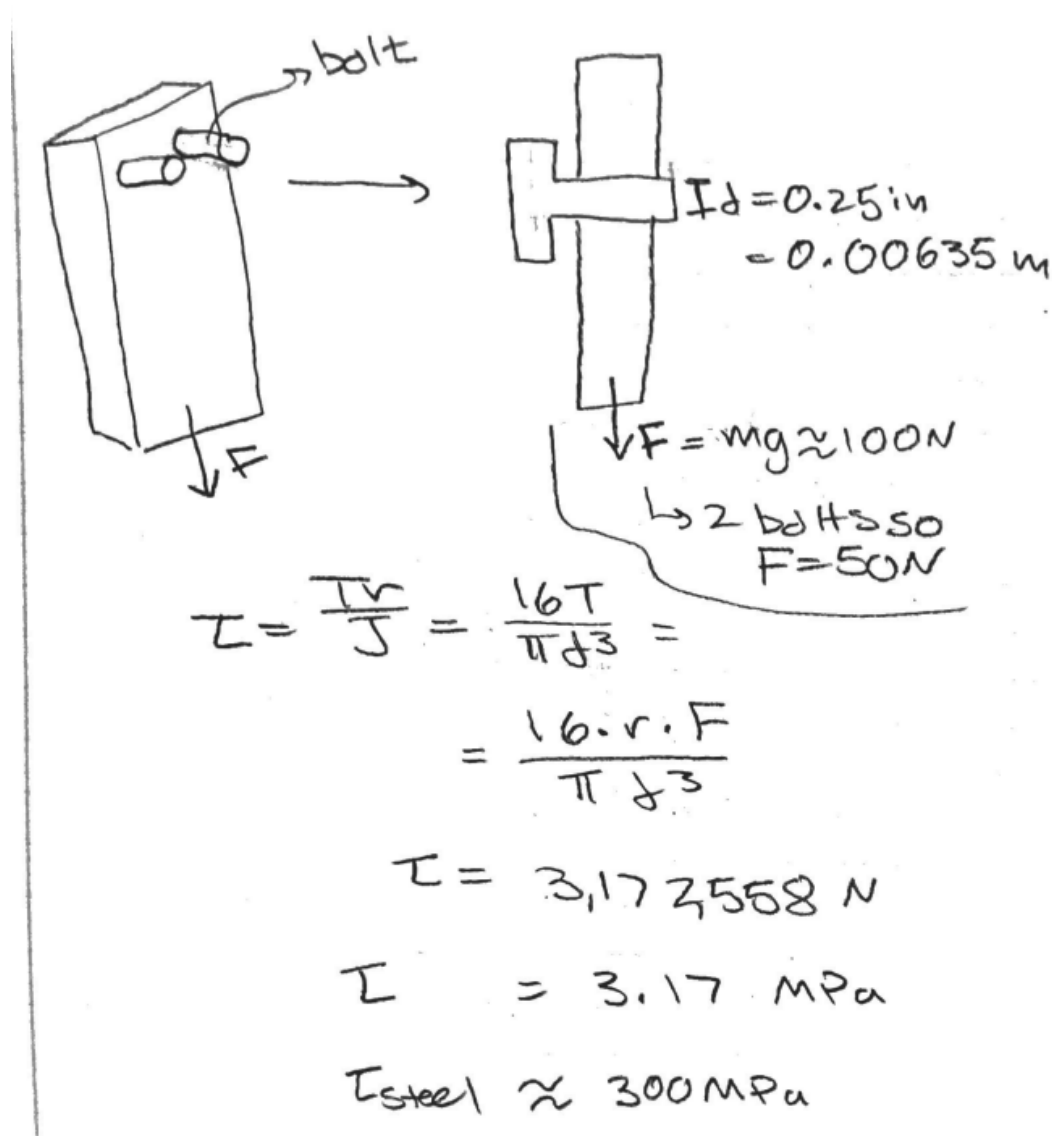 bolt
d = 0.25 in
= 0.00635 m
F = mg ≈ 100N
↳ 2 bolts so
F = 50N
F
τ = Tr/J = 16T/πd³ =
= 16·r·F/πd³
τ = 3,172,558 N
τ = 3.17 MPa
τsteel ≈ 300MPa